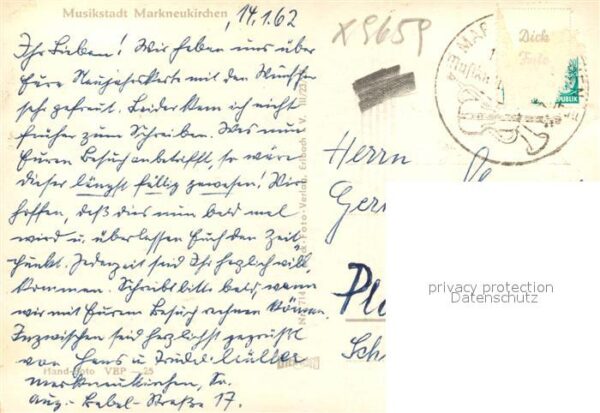 Musikstadt Markneukirchen
, 14.1.62
Ihr Lieben! Wir haben uns über
Eure Neujahrskarte mit den Wünschen
sehr gefreut. Leider kam ich nicht
früher zum Schreiben. Was nun
Euren Besuch anbetrifft, so wäre
dieser längst fällig gewesen! Wir
hoffen, daß dies nun bald mal
wird u. überlassen Euch den Zeit-
punkt. Jederzeit seid Ihr herzlich will-
kommen. Schreibt bitte bald, wann
wir mit Eurem Besuch rechnen können.
Inzwischen seid herzlichst gegrüßt
von Hans u. Trudel Müller
Hand-Foto VEP — 25
Markneukirchen, Sa.
Aug.-Bebel-Straße 17.
Foto-Verlag Erlbach V.
X9659
Dein
Foto
MAR
Musik
PUBLIK
Herrn
Ger
Pl
Sch
privacy protection
Datenschutz